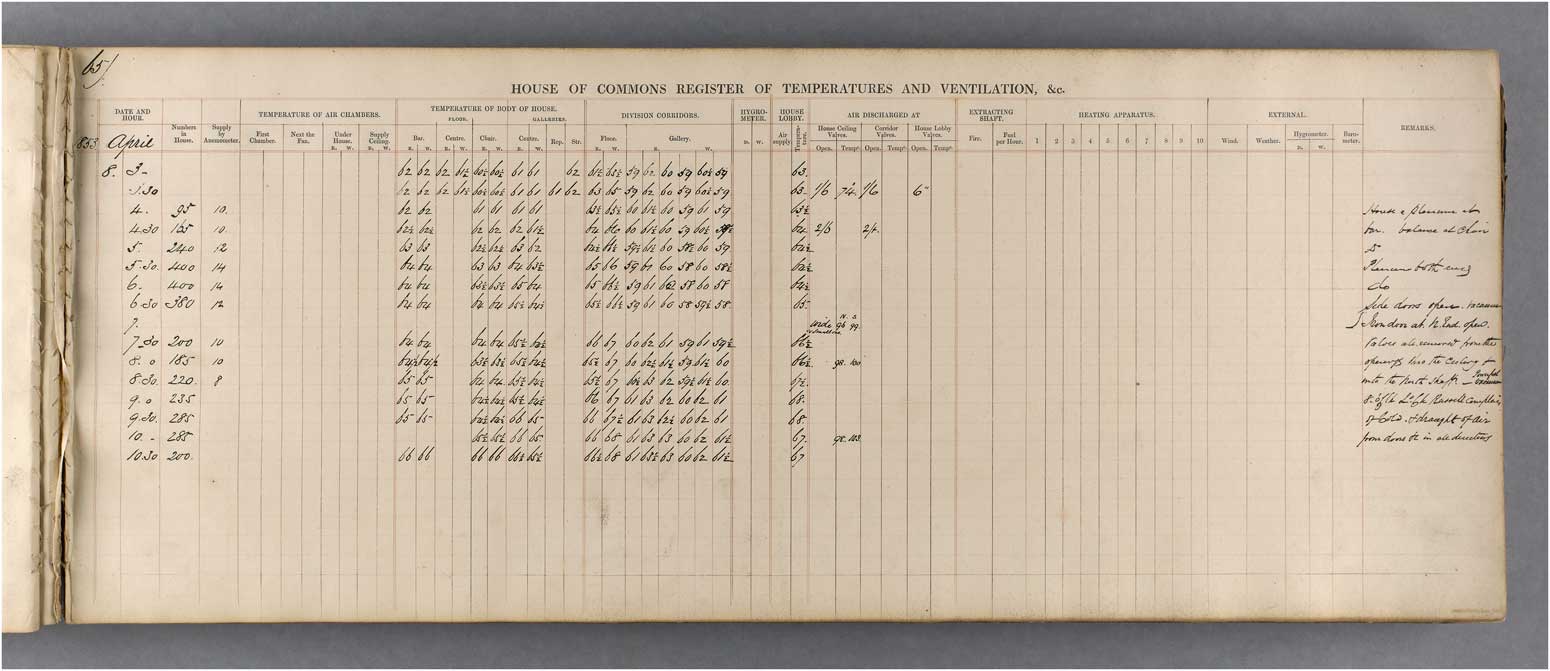 65/
HOUSE OF COMMONS REGISTER OF TEMPERATURES AND VENTILATION, &c.
DATE AND HOUR. Numbers in House. Supply by Anemometer. TEMPERATURE OF AIR CHAMBERS. TEMPERATURE OF BODY OF HOUSE. DIVISION CORRIDORS. HYGRO-METER. HOUSE LOBBY. AIR DISCHARGED AT EXTRACTING SHAFT. HEATING APPARATUS. EXTERNAL. REMARKS.
FLOOR. GALLERIES.
First Chamber. Next the Fan. Under House. Supply Ceiling. Bar. Centre. Chair. Centre. Rep. Str. Floor. Gallery. D. W. Air supply Tempera-ture. House Ceiling Valves. Corridor Valves. House Lobby Valves. Fire. Fuel per Hour. 1 2 3 4 5 6 7 8 9 10 Wind. Weather. Hygrometer. Baro-meter.
E. W. E. W. E. W. E. W. E. W. E. W. E. W. E. W. Open. Temp. Open. Temp. Open. Temp. D. W.
1853 April
8. 3- 62 62 62 61½ 60½ 60½ 61 61 62 61½ 65½ 59 62 60 59 60½ 59 63.
3.30 62 62 62 61½ 60½ 60½ 61 61 61 62 63 65 59 62 60 59 60½ 59 63. 1/6 74. 1/6 6"
4. 95 10. 62 62 61 61 61 61 63½ 65½ 60 61½ 60 59 61 59 63½ House
4.30 165 10. 62½ 62½ 62 62 62 61½ 64 66 60 61½ 60 59 60½ 64. 2/6 2/. bar. balance at Chair
5 240 12 63 63 62½ 62½ 63 62 64½ 59½ 61 60 58½ 60 59 64½ Do
5.30. 400 14 64 64 63 63 64 63½ 65 66 59 61 60 58 60 58½ 64½ both ends
6. 400 14 64 64 63½ 63½ 65 64 65 66½ 59 61 62 58 60 58 64½ do
6.30 380 12 64 64 64 64 65½ 64½ 65½ 66½ 59 61 60 58 59½ 58 65. Side doors open. vacuum
7. wide N. 96 S. 99. door at N. End. open.
7.30 200 10 64 64 64 64 65½ 64½ 66 67 60 62 61 59 61 59½ 66½ Valves all removed from the
8. 0 185 10 64½ 64½ 63½ 63½ 65½ 64½ 65½ 67 60 62½ 61½ 59 61½ 60 66½ 98. 100 openings thro the Ceiling &
8.30. 220. 8 65 65 64 64 65½ 64½ 65½ 67 60½ 63 62 59½ 61½ 60 67½ into the North Shaft
9. 0 235 65 65 64½ 64½ 65½ 64½ 66 67 61 63 62 60 62 61 68. Russell complains
9.30. 285 65 65 64½ 64½ 66 65 66 67½ 61 63 62½ 60 62 61 68. of Cold & draught of air
10. - 285 65½ 65½ 66 65 66 68 61 63 63 60 62 61½ 67. 98. 103 from doors &c in all directions
10.30 200. 66 66 66 66 66½ 65½ 66½ 68 61 63½ 63 60 62 61½ 67